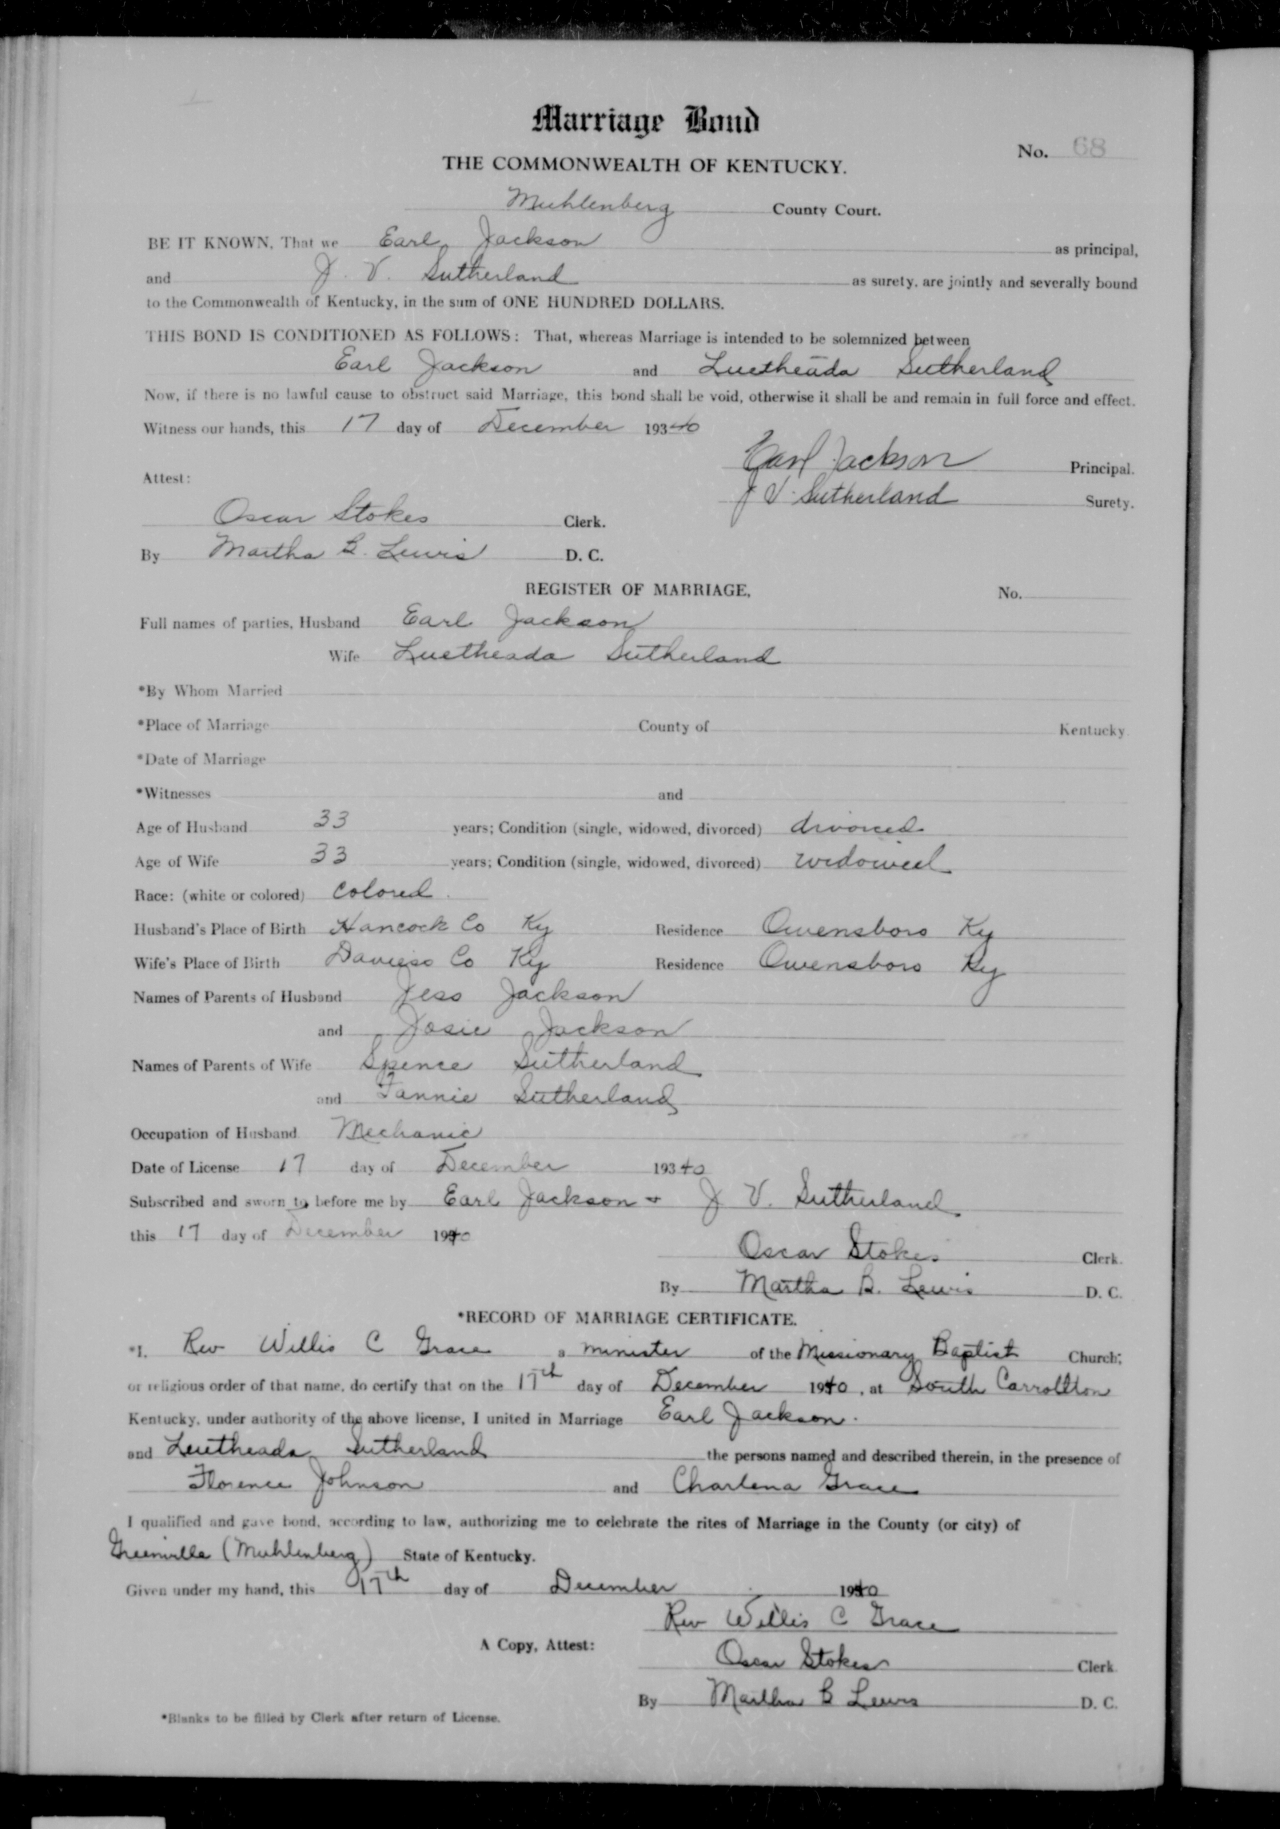 Marriage Bond
No. 68
THE COMMONWEALTH OF KENTUCKY.
Muhlenberg County Court.
BE IT KNOWN, That we Earl Jackson as principal,
and J. V. Sutherland as surety, are jointly and severally bound
to the Commonwealth of Kentucky, in the sum of ONE HUNDRED DOLLARS.
THIS BOND IS CONDITIONED AS FOLLOWS: That, whereas Marriage is intended to be solemnized between
Earl Jackson and Luetheada Sutherland
Now, if there is no lawful cause to obstruct said Marriage, this bond shall be void, otherwise it shall be and remain in full force and effect.
Witness our hands, this 17 day of December 19340
Earl Jackson Principal.
Attest:
J V. Sutherland Surety.
Oscar Stokes Clerk.
By Martha B. Lewis D. C.
REGISTER OF MARRIAGE, No.
Full names of parties, Husband Earl Jackson
Wife Luetheada Sutherland
*By Whom Married
*Place of Marriage County of Kentucky
*Date of Marriage
*Witnesses and
Age of Husband 33 years; Condition (single, widowed, divorced) divorced
Age of Wife 33 years; Condition (single, widowed, divorced) widowed
Race: (white or colored) colored.
Husband's Place of Birth Hancock Co Ky Residence Owensboro Ky
Wife's Place of Birth Daviess Co Ky Residence Owensboro Ky
Names of Parents of Husband Jess Jackson
and Josie Jackson
Names of Parents of Wife Spence Sutherland
and Fannie Sutherland
Occupation of Husband Mechanic
Date of License 17 day of December 19340
Subscribed and sworn to before me by Earl Jackson + J V. Sutherland
this 17 day of December 1940
Oscar Stokes Clerk.
By Martha B. Lewis D. C.
*RECORD OF MARRIAGE CERTIFICATE.
*I, Rev Willis C Grace a minister of the Missionary Baptist Church;
or religious order of that name, do certify that on the 17th day of December 1940, at South Carrollton
Kentucky, under authority of the above license, I united in Marriage Earl Jackson.
and Luetheada Sutherland the persons named and described therein, in the presence of
Florence Johnson and Charlena Grace
I qualified and gave bond, according to law, authorizing me to celebrate the rites of Marriage in the County (or city) of
Greenville (Muhlenberg) State of Kentucky.
Given under my hand, this 17th day of December 1940
Rev Willis C Grace
A Copy, Attest:
Oscar Stokes Clerk
By Martha B Lewis D. C.
*Blanks to be filled by Clerk after return of License.